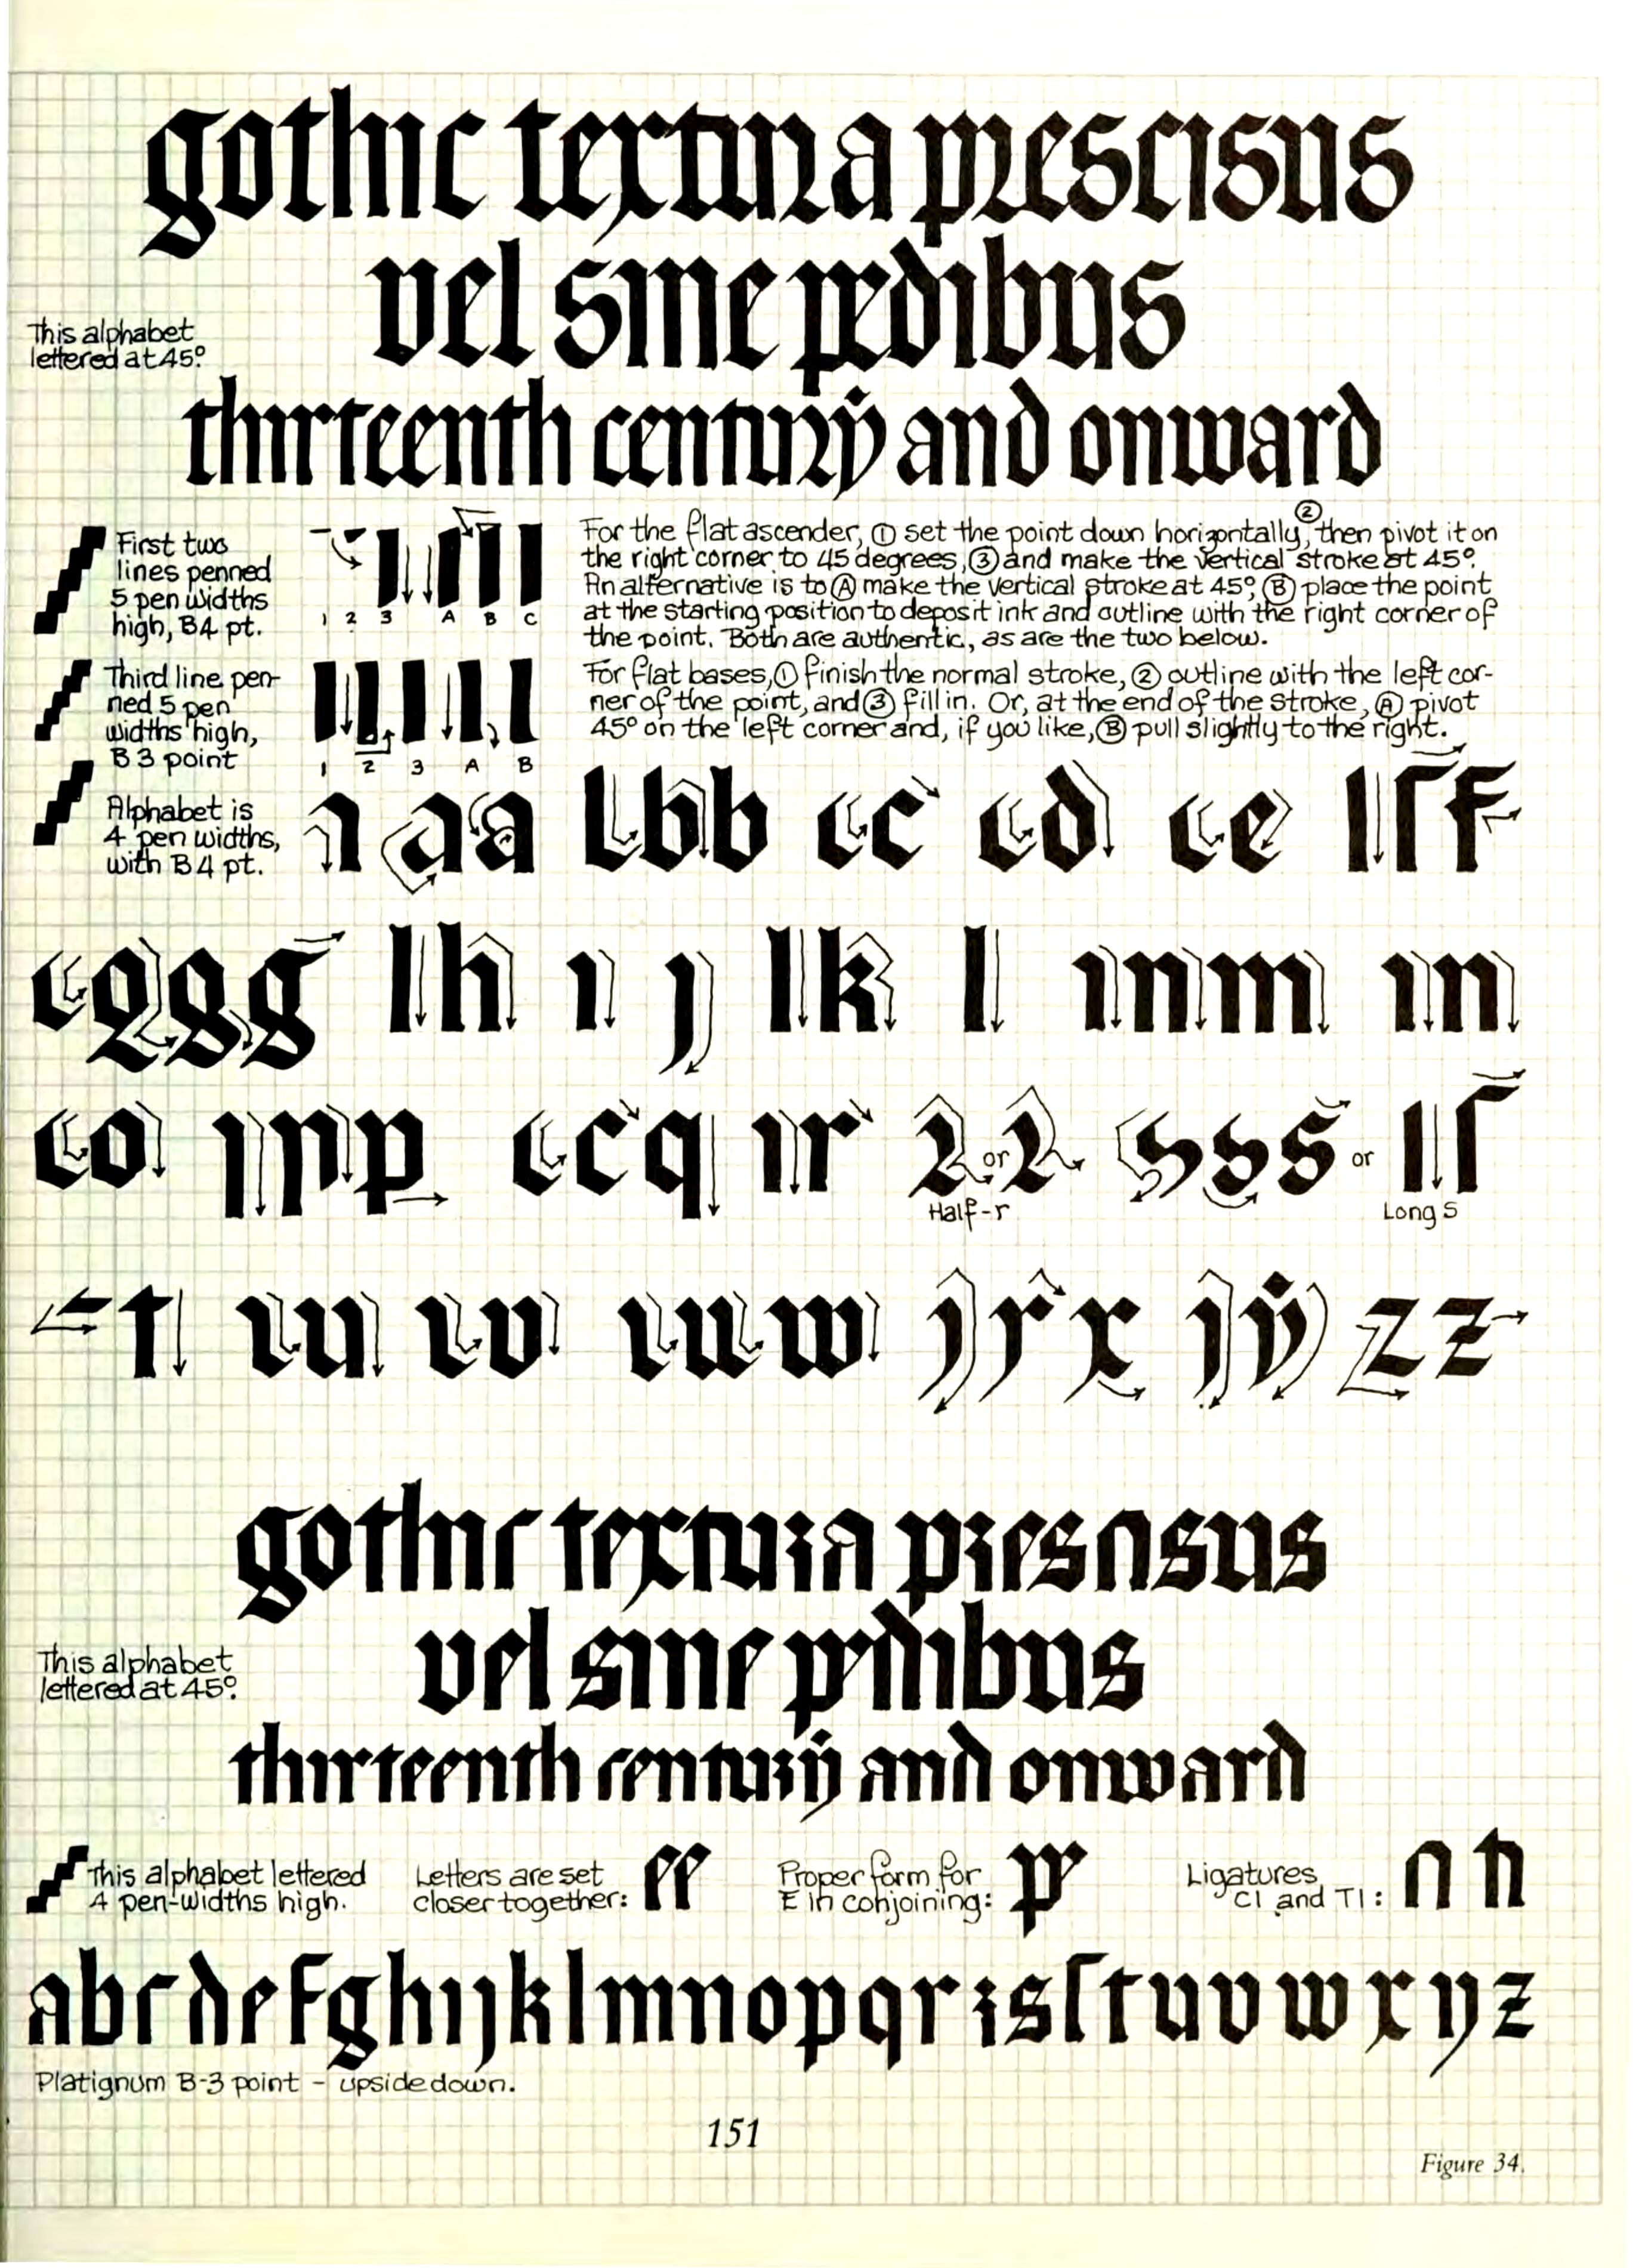 gothic textura prescisus
vel sine pedibus
This alphabet
lettered at 45°.
thirteenth century and onward
First two
lines penned
5 pen widths
high, B4 pt.
1 2 3 A B C
For the flat ascender, ① set the point down horizontally, ② then pivot it on
the right corner to 45 degrees, ③ and make the vertical stroke at 45°.
An alternative is to Ⓐ make the vertical stroke at 45°, Ⓑ place the point
at the starting position to deposit ink and outline with the right corner of
the point. Both are authentic, as are the two below.
Third line pen-
ned 5 pen
widths high,
B 3 point
1 2 3 A B
For flat bases, ① finish the normal stroke, ② outline with the left cor-
ner of the point, and ③ fill in. Or, at the end of the stroke, Ⓐ pivot
45° on the left corner and, if you like, Ⓑ pull slightly to the right.
Alphabet is
4 pen widths,
with B4 pt.
a a b b c c d e f
g g h i j k l m n
o p q r ꝛ or ꝛ s or ſ
Half-r
Long S
t u v w x ÿ z z
gothic textuꝛa pꝛescisus
vel sine pedibus
This alphabet
lettered at 45°.
thirteenth centuꝛÿ and onward
This alphabet lettered
4 pen-widths high.
Letters are set
closer together: ee
Proper form for
E in conjoining: pe
Ligatures
CI and TI: ci ti
abcdefghijklmnopqrꝛsſtuvwxyz
Platignum B-3 point - upside down.
151
Figure 34.